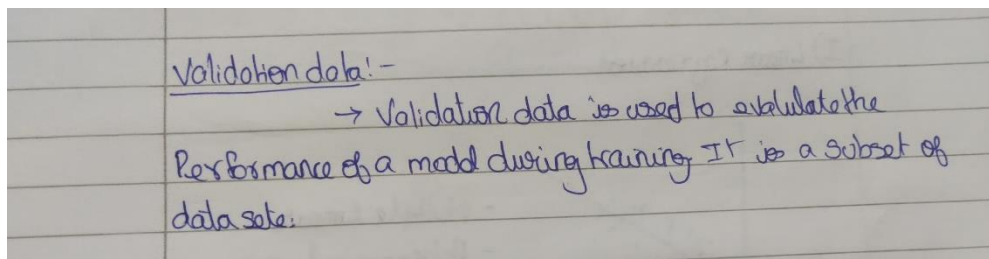 Validation data:-
→ Validation data is used to evalulate the
Performance of a model during training It is a subset of
data sets.